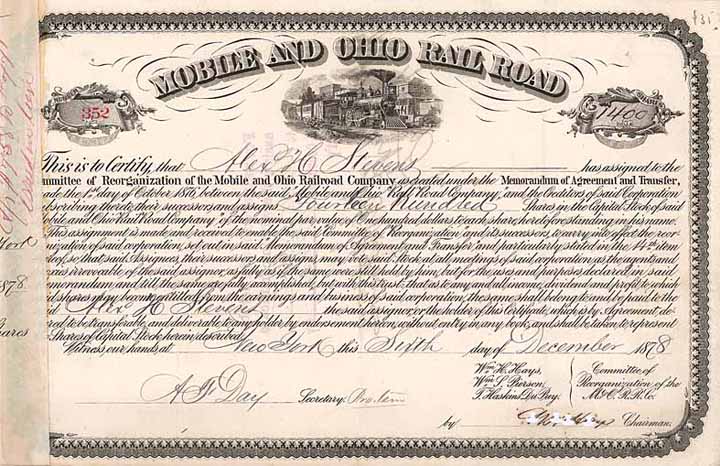 £31
MOBILE AND OHIO RAIL ROAD
352
1400
This is to Certify, that Alex H Stevens has assigned to the
mmittee of Reorganization of the Mobile and Ohio Railroad Company as created under the Memorandum of Agreement and Transfer,
ate the 1st day of October 1876 between the said "Mobile and Ohio Rail Road Company," and the Creditors of said Corporation
subscribing thereto, their successors and assigns Fourteen Hundred Shares in the Capital Stock of said
bile and Ohio Rail Road Company", of the nominal par value of One hundred dollars to each share, heretofore standing in his name.
This assignment is made and received to enable the said Committee of Reorganization and its successors, to carry into effect the reor-
nization of said corporation, set out in said "Memorandum of Agreement and Transfer" and particularly stated in the 14th item
thereof, so that said Assignees, their successors and assigns, may vote said Stock at all meetings of said corporation as the agents and
oxies irrevocable of the said assignor, as fully as if the same were still held by him, but for the uses and purposes declared in said
memorandum and till the same are fully accomplished, but with this trust: that as to any and all income, dividend and profit, to which
id shares may become entitled from the earnings and business of said corporation, the same shall belong to and be paid to the
d Alex H Stevens the said assignor or the holder of this Certificate, which is by Agreement de-
red to be transferable, and deliverable to any holder by endorsement hereon, without entry in any book, and shall be taken to represent
Shares of Capital Stock herein described.
Witness our hands at New York this Sixth day of December 1878
A F Day Secretary. Pro tem
Wm. H. Hays,
Wm. L. Pierson,
F. Haskins Du Puy.
Committee of
Reorganization of the
M & O. R. R. Co.
by Chairman.
York
1878
hares